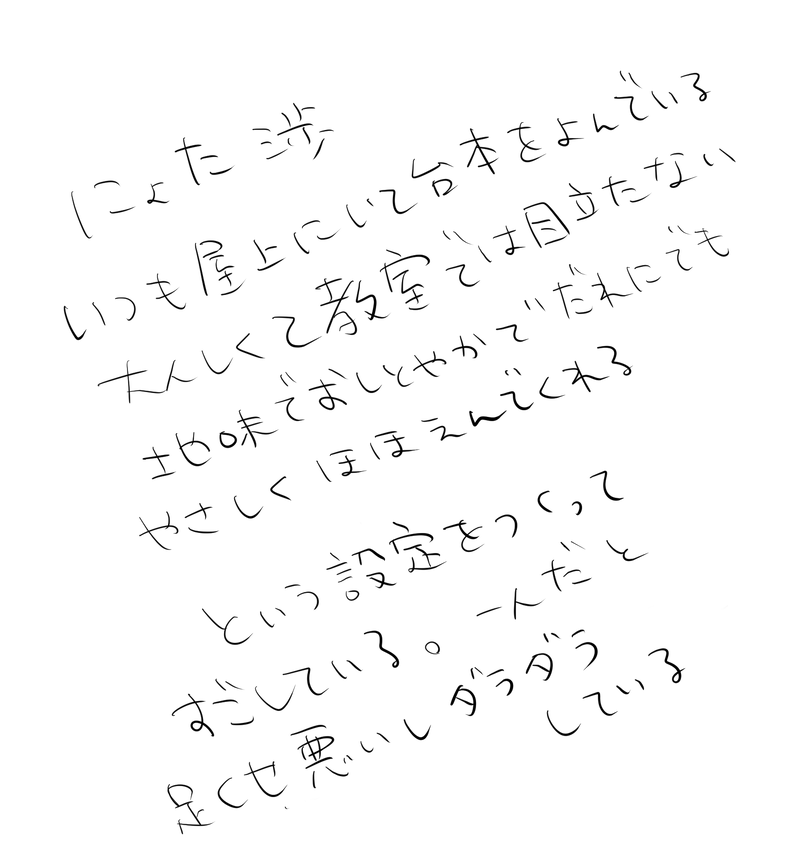 にょた 渉
いつも屋上にいて台本をよんでいる
大人しくて教室では目立たない
地味でおしとやかで だれにでも
やさしく ほほえんでくれる
という設定をつくって
すごしている。一人だと
足くせ悪いし ダラダラ
している